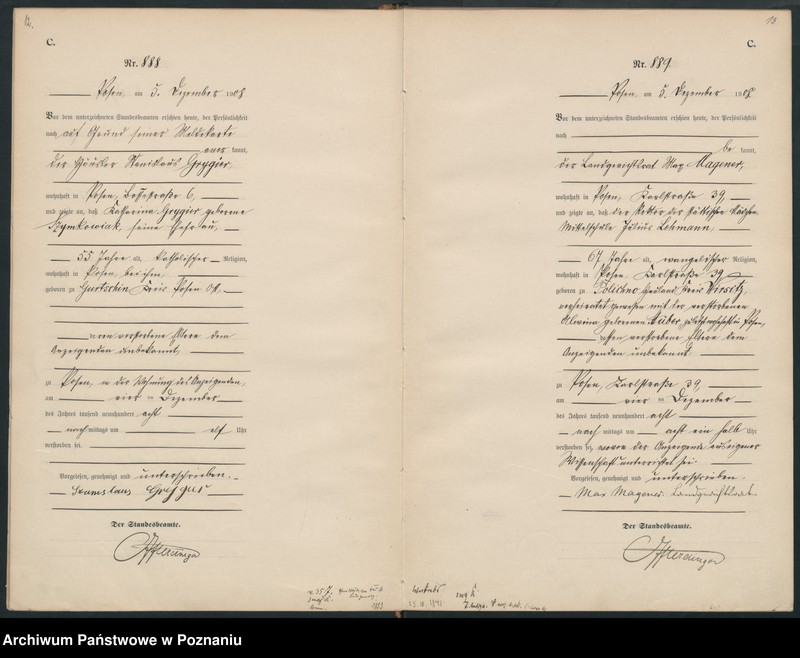 12.
C.
Nr. 888
Posen, am 5. Dezember 1908
Vor dem unterzeichneten Standesbeamten erschien heute, der Persönlichkeit
nach auf Grund seiner Meldekarte
kannt,
der Häusler Stanislaus Grygier,
wohnhaft in Posen, 6,
und zeigte an, daß Katharina Grygier geborene
Szymkowiak, seine Ehefrau,
55 Jahre alt, katholischer Religion,
wohnhaft in Posen, bei ihm,
geboren zu Gurtschin Kreis Posen Ost,
deren verstorbene Eltern dem
Anzeigenden unbekannt,
zu Posen, in der Wohnung des Anzeigenden,
am vier ten Dezember
des Jahres tausend neunhundert acht
nach mittags um elf Uhr
verstorben sei.
Vorgelesen, genehmigt und unterschrieben.
Stanislaus Grygier
Der Standesbeamte.
13
C.
Nr. 889
Posen, am 5. Dezember 1908
Vor dem unterzeichneten Standesbeamten erschien heute, der Persönlichkeit
nach
be kannt,
der Landgerichtsrat Max Magener,
wohnhaft in Posen, Karlstraße 39,
und zeigte an, daß der Rektor der städtischen
Mittelschule Julius Lehmann,
67 Jahre alt, evangelischer Religion,
wohnhaft in Posen, Karlstraße 39
geboren zu Kreis Wirsitz,
verheiratet gewesen mit der verstorbenen
geborenen zuletzt wohnhaft in Posen,
dessen verstorbene Eltern dem
Anzeigenden unbekannt
zu Posen, Karlstraße 39,
am vier ten Dezember
des Jahres tausend neunhundert acht
nach mittags um acht ein halb Uhr
verstorben sei, wovon der Anzeigende aus eigener
Wissenschaft unterrichtet sei.
Vorgelesen, genehmigt und unterschrieben.
Max Magener. Landgerichtsrat.
Der Standesbeamte.
Archiwum Państwowe w Poznaniu